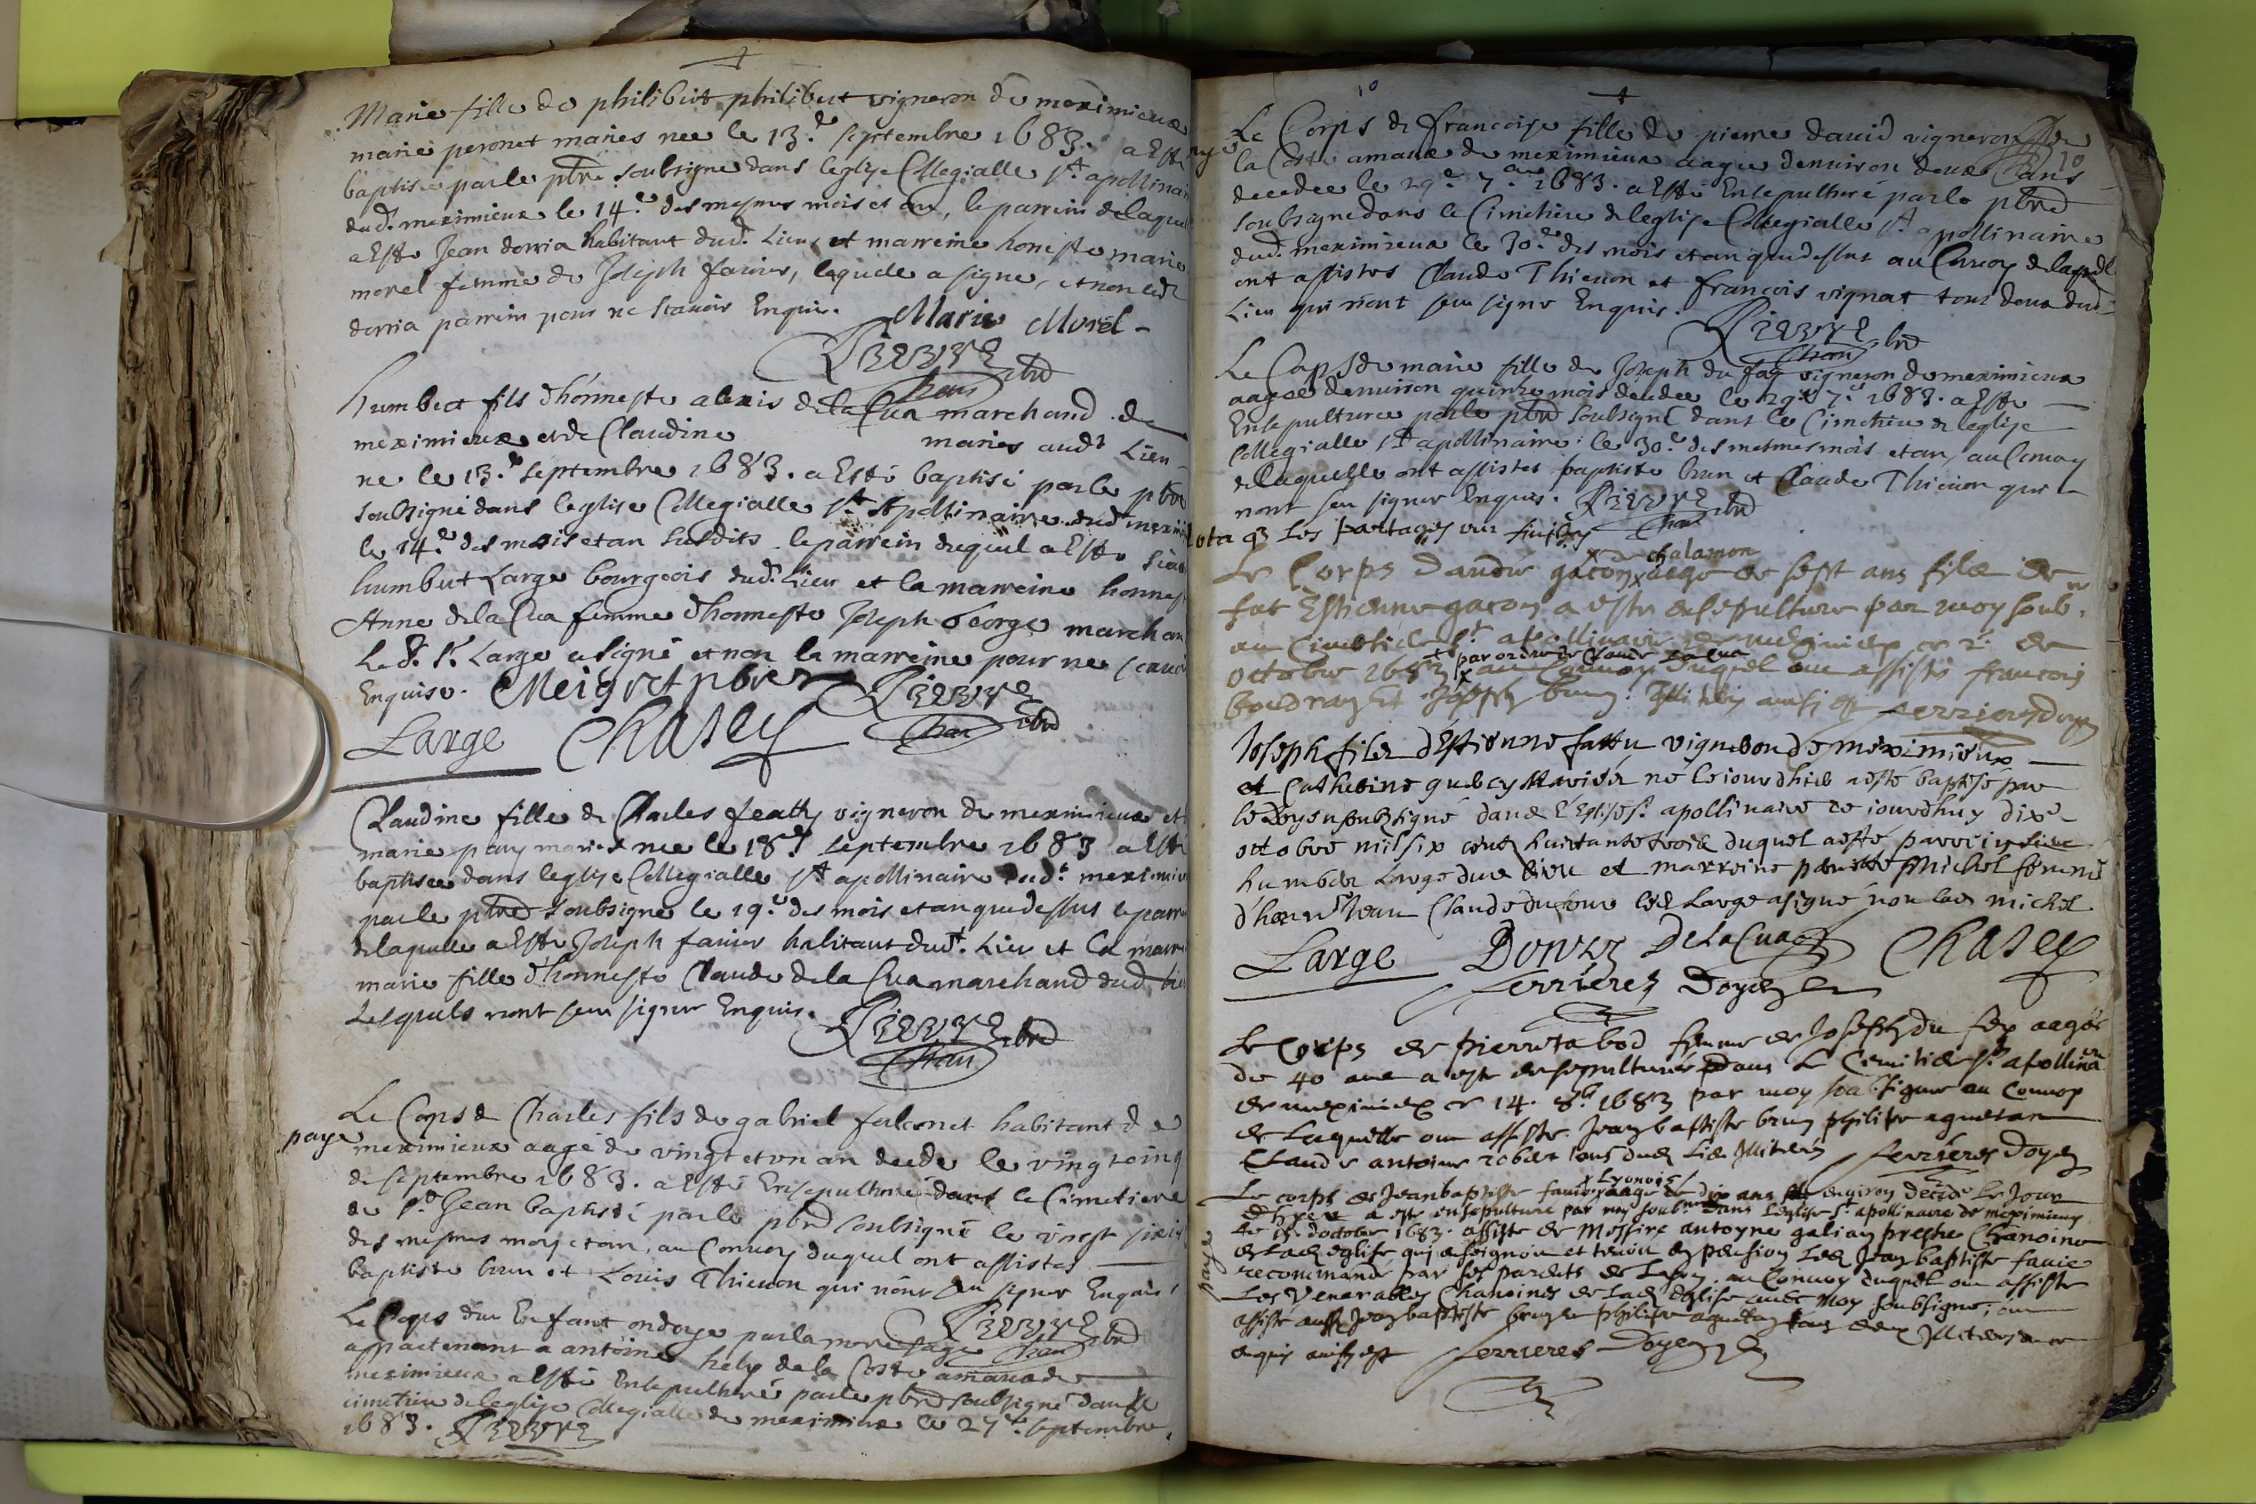 Marie fille de philibert philibert vigneron de meximieux
marie peronet maries nee le 13.e septembre 1683. a Esté
baptisée par le pbre soubsigné dans leglise Collegialle st apollinaire
dud. meximieux le 14.e des mesmes mois et an, le parrein de laquelle
a Esté Jean dorria habitant dud. Lieu, et marreine honeste marie
morel femme de Joseph favier, laquelle a signé, et non led.
dorria parrein pour ne scavoir Enquis.
Marie Morel
chan pbre
humbert fils d'honneste alexis de la Cua marchand de
meximieux et de Claudine maries audt Lieu
ne le 13.e septembre 1683. a Esté baptisé par le pbre
soubsigné dans leglise Collegialle st Apollinaire dudt mexi
le 14.e des mois et an susdits. le parrein duquel a Esté sieur
humbert Large bourgeois dud. Lieu et la marreine honneste
Anne de la Cua femme d'honneste Joseph George marchan
Le d. sr. Large a signé et non la marreine pour ne scavoir
Enquise. Meigret pbre
Large Chasey chan pbre
Claudine fille de Charles feath vigneron de meximieux et
marie pary maries nee le 18.e septembre 1683 a Esté
baptisee dans leglise Collegialle st apollinaire dudt meximieux
par le pbre soubsigné le 19.e des mois et an que dessus le parrein
de laquelle a Esté Joseph favier habitant dudt. Lieu et la marreine
marie fille d'honneste Claude de la Cua marchand dud. lieu
Lesquels n'ont sceu signer Enquis.
chan pbre
Le Corps de Charles fils de gabriel falconet habitant de
paye meximieux aagé de vingt et un an decedé le vingt cinq
de septembre 1683. a Esté Ensepulturé dans le Cimetiere
de st. Jean baptiste par le pbre soubsigné le vingt sixie
des mesmes mois et an, au Convoy duquel ont assistes
baptiste brun et Louis Thievon qui n'ont sceu signer Enquis
Le Corps d'un Enfant ondoyé par la mere sage
chan pbre
appartenant a antoine hely de la Coste amaux de
meximieux a Esté Ensepulturé par le pbre soubsigné dans le
cimetiere de leglise Collegialle de meximieux le 27.e septembre
1683.
10
Le Corps de francoise fille de pierre david vigneron de
la Coste amaux de meximieux aagee denviron deux ans 10
decedee le 29.e 7.bre 1683. a Esté Ensepulturé par le pbre
soubsigné dans le Cimetiere de leglise Collegialle st apollinaire
dud. meximieux le 30.e des mois et an que dessus au Convoy de laquelle
ont assistes Claude Thievon et francois vignat tous deux dud.
Lieu qui n'ont sceu signer Enquis.
chan pbre
Le Corps de marie fille de Joseph du fay vigneron de meximieux
aagee denviron quinze mois decedee le 29.e 7.e 1683. a Esté
Ensepulturee par le pbre soubsigné dans le Cimetiere de leglise
Collegialle st apollinaire le 30.e des mesmes mois et an, au Convoy
de laquelle ont assistes baptiste brun et Claude Thievon qui
n'ont sceu signer Enquis. chan pbre
Nota q. Les partages
x de chalamon
Le Corps dandre gacon x aagé de sept ans filz de
fut Estienne gacon a este ensepulturé par moy soub.
au Cimetiere st. apollinaire de meximieux ce 2. de
+ par ordre de Claude Lacua
octobre 1683 x au Convoy duquel ont assistés francois
boudray et Joseph brun. Illiterés ainsi est ferrieres doyen
Joseph filz d'Estienne fattu vigneron de méximieux
et Catherine quercy mariés né le jourdhier a esté baptisé par
le doyen soubsigné dans l'Eglise st. apollinaire ce jourdhuy dixe
octobre mil six cents huictante trois duquel a esté parrein sieur
humbert Large dud. lieu et marreine Michel femme
d'honn. Jean Claude led. Large a signé non lad. michel
Large Donzz De la Cua Chasey
ferrieres Doyen
Le Corps de pierrette bod femme de Joseph du fey aagée
de 40 ans a este ensepulturée dans le Cimitiere st. apollinaire
de meximieux ce 14. 8.bre 1683 par moy soubsigné au Convoy
de laquelle ont assisté. Jean baptiste brun philipe aguetan
Claude antoine robert tous dud. lieu Illiterés ferrieres Doyen
x Lyonois
Le corps de Jean baptiste favie x aagé de dix ans environ decede Le Jour
d'hyer a este ensepulturé par moy soub.né dans Leglise st. apollinaire de meximieux
ce 15. doctobre 1683. assisté de Messire antoyne galian prestre Chanoine
paye de lad. eglise qui enseignoit et tenoit en pension led. Jean baptiste favie
recommandé par ses parents de Lyon. au Convoy duquel ont assisté
Les Venerables Chanoines de Lad. Eglise avec Moy soubsigné, ont
assisté aussi Jean baptiste brun et philipe aguetan tous deux Illiterés ce
enquis ainsy est ferrieres Doyen